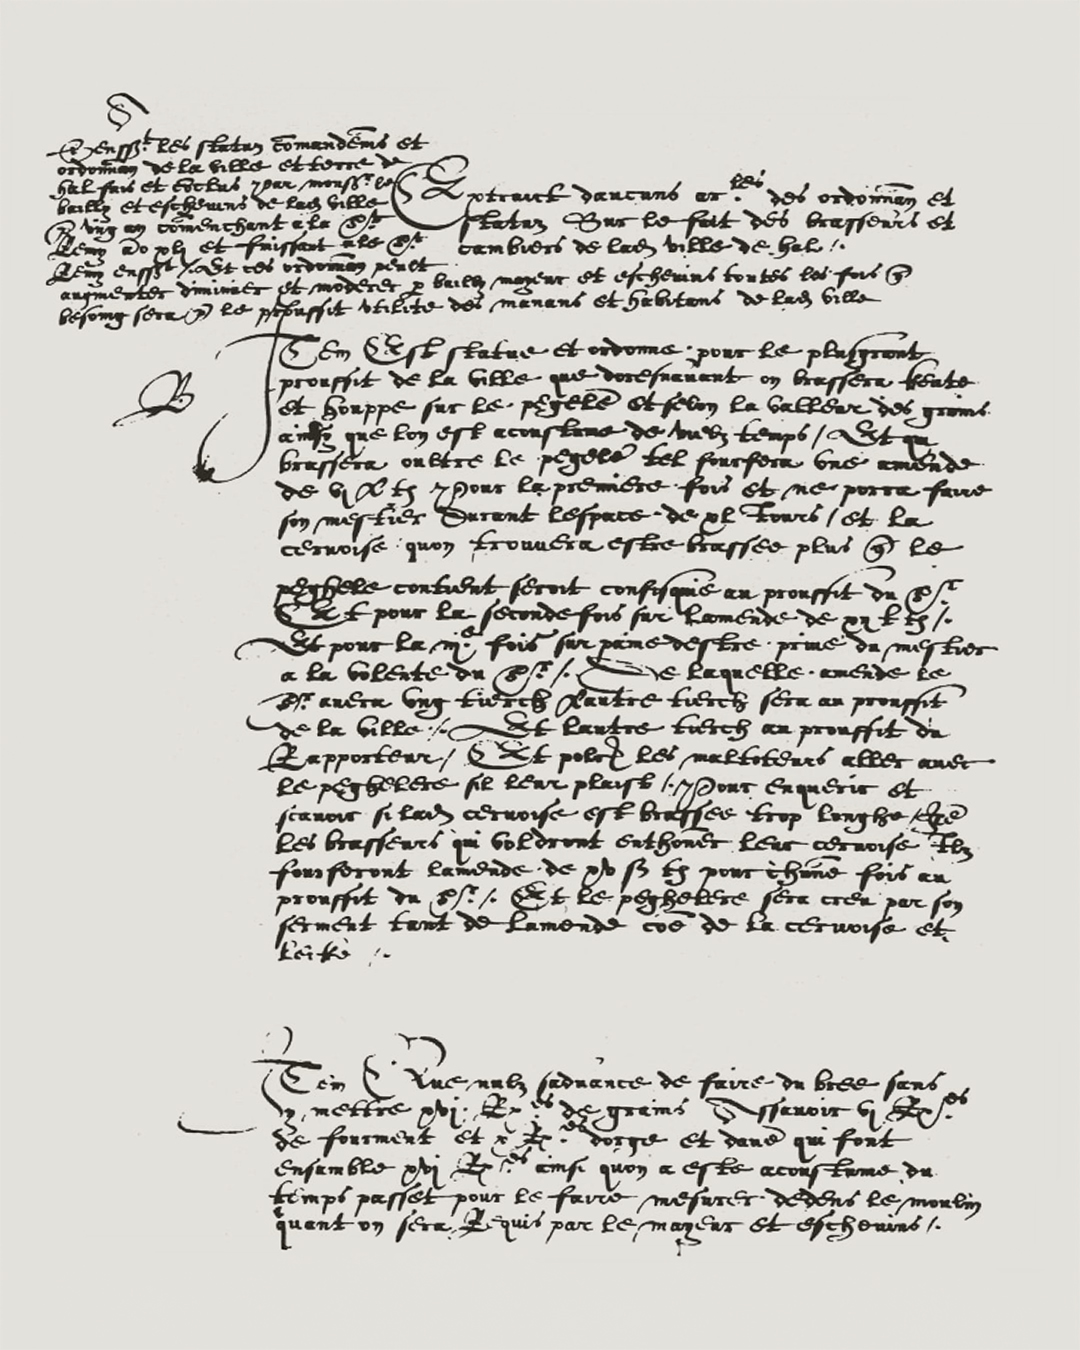 S
Sens[uy]t les statuz comandems et
ordonnan de la ville et terre de
hal fais et conclus par monsr le
bailly et eschevins de lad ville
ung an comenchant a la St
Remy ao xlj et finissant a le St
Remy enss Et ces ordonnan peult
augmenter diminuer et moderer p bailly mayeur et eschevins toutes les fois q
besoing sera p le prouffit utilite des manans et habitans de lad ville
Extraict daucuns arles des ordonnan et
statuz Sur le fait des brasseurs et
cambiers de lad ville de hal /.
B
Item Est statue et ordonne pour le plusgrant
prouffit de la ville que doresnavant on brassera keute
et houppe sur le peghele et selon la valleur des grains
ainsy que lon est acoustume de viez temps / Et qui
brassera oultre le peghele tel fourfera une amende
de vj £ ts Pour la premiere fois et ne porra faire
son mestier Durant lespace de xl Jours / et la
cervoise quon trouvera estre brassee plus q le
peghele contient seroit confisquie au prouffit du Sr
Et pour la seconde fois sur lamende de xij £ ts /.
Et pour la iije fois sur paine destre prive du mestier
a la volente du Sr /. De laquelle amende le
Sr avera ung tierch Lautre tierch sera au prouffit
de la ville /. Et lautre tierch au prouffit du
Rapporteur / Et polront les maltoteurs aller avec
le peghelere sil leur plaist /. Pour enquerir et
scavoir si lad cervoise est brassee trop longhe / Que
les brasseurs qui voldront enthoner leur cervoise Ilz
fourferont lamende de xv s ts pour chune fois au
prouffit du Sr /. Et le peghelere sera creu par son
serment tant de lamende coe de la cervoise et
keike /.
Item Que nulz sadvance de faire du bree sans
y mettre xvj Rxes de grains Assavoir vj Rxes
de fourment et x Rxes dorge et dave qui font
ensamble xvj Rxes ainsi quon a este acoustume du
temps passet pour le faire mesurer dedens le moulin
quant on sera Requis par le mayeur et eschevins /.